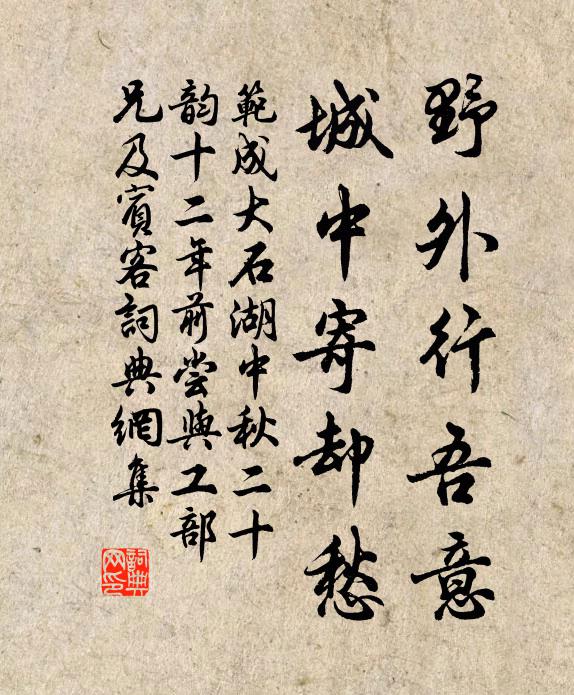 野外行吾意
城中寄却愁
範成大石湖中秋二十
韵十二年前嘗與工部
兄及賓客詞典網集
詞典網印